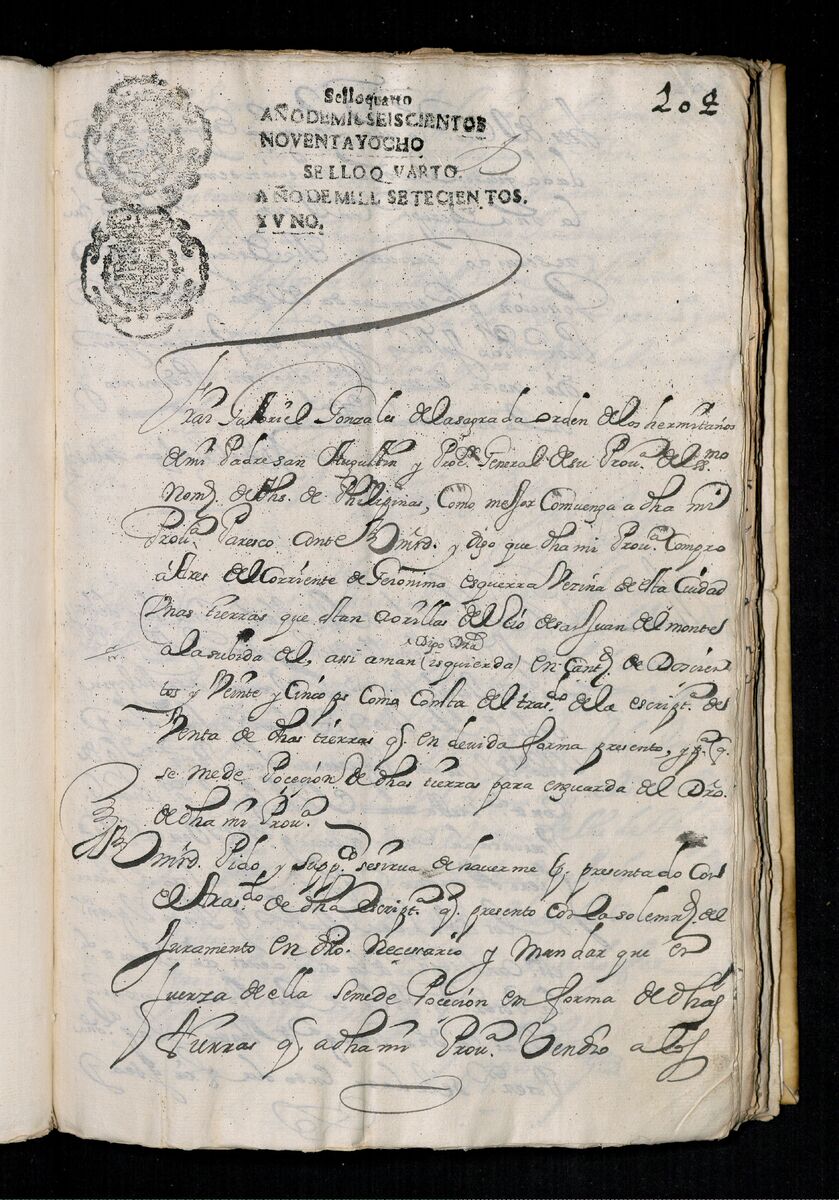 202
Selloquarto
AÑODEMILSEISCIENTOS
NOVENTAYOCHO
SELLOQVARTO.
AÑODEMILL SETECIENTOS.
YVNO.
Frai Gabriel Gonzales de la sagrada orden de los hermitaños
de mi Padre san Augustin y Proc.or General de su Prou.a del SS.mo
Nom.e de Jhs. de Philipinas, Como mejor Combenga a dha mi
Prou.a Paresco Ante Vmrd. y digo que dha mi Prou.a Compro
á tres del Corriente de Geronima esguerra Vezina de esta Ciudad
Vnas tierras que estan a orillas del Rio de san Juan del monte
Digo Dra
a la subida del, assi aman (isquierda) en Cantd. de Docien
tos y Veinte y Cinco ps como Consta del tras.do de la escript.a de
Venta de dhas tierras q. en devida forma presento, y p.a q.
se me de Poceción de dhas tierras para enguarda del Dro.
de dha mi Prou.a
A Vmrd. Pido, y supp.co se sirua de hauerme p. presentado Con
el tras.do de dha escript.a q. presento Con la solemnd. del
Juramento en dro. Necessario y Mandar que en
fuerza de ella se me de Poceción en forma de dhas
tierras q. a dha mi Prou.a Vendio a los